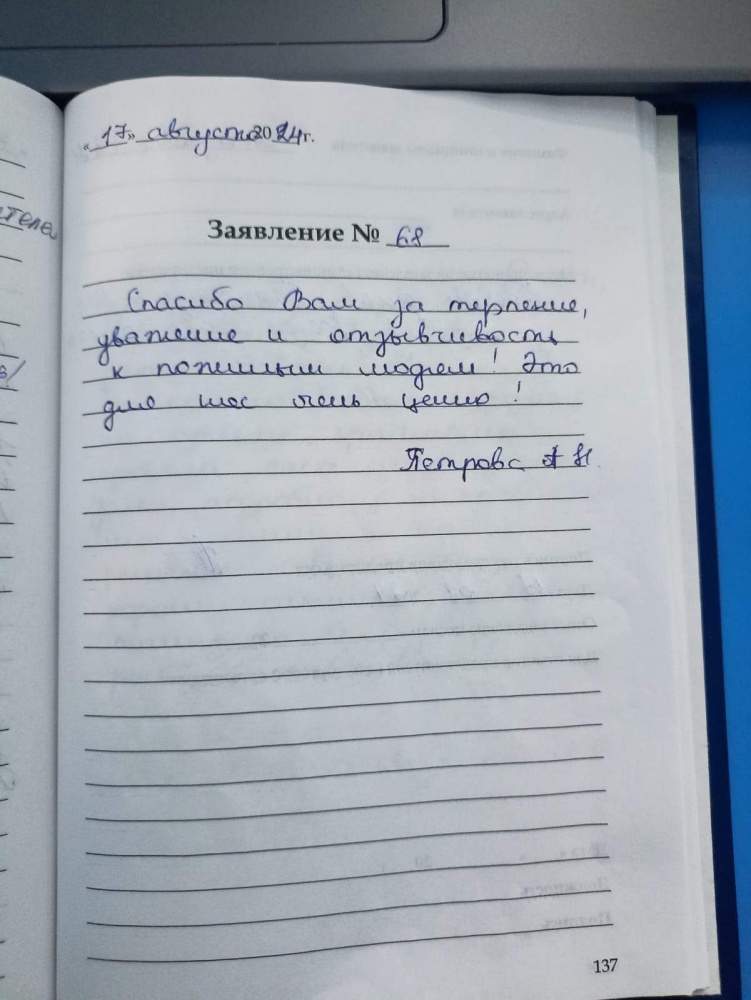 «17» август 2024г.
Заявление № 68
Спасибо Вам за терпение,
уважение и отзывчивость
к пожилым людям! Это
для нас очень ценно!
Петрова А Н.
137